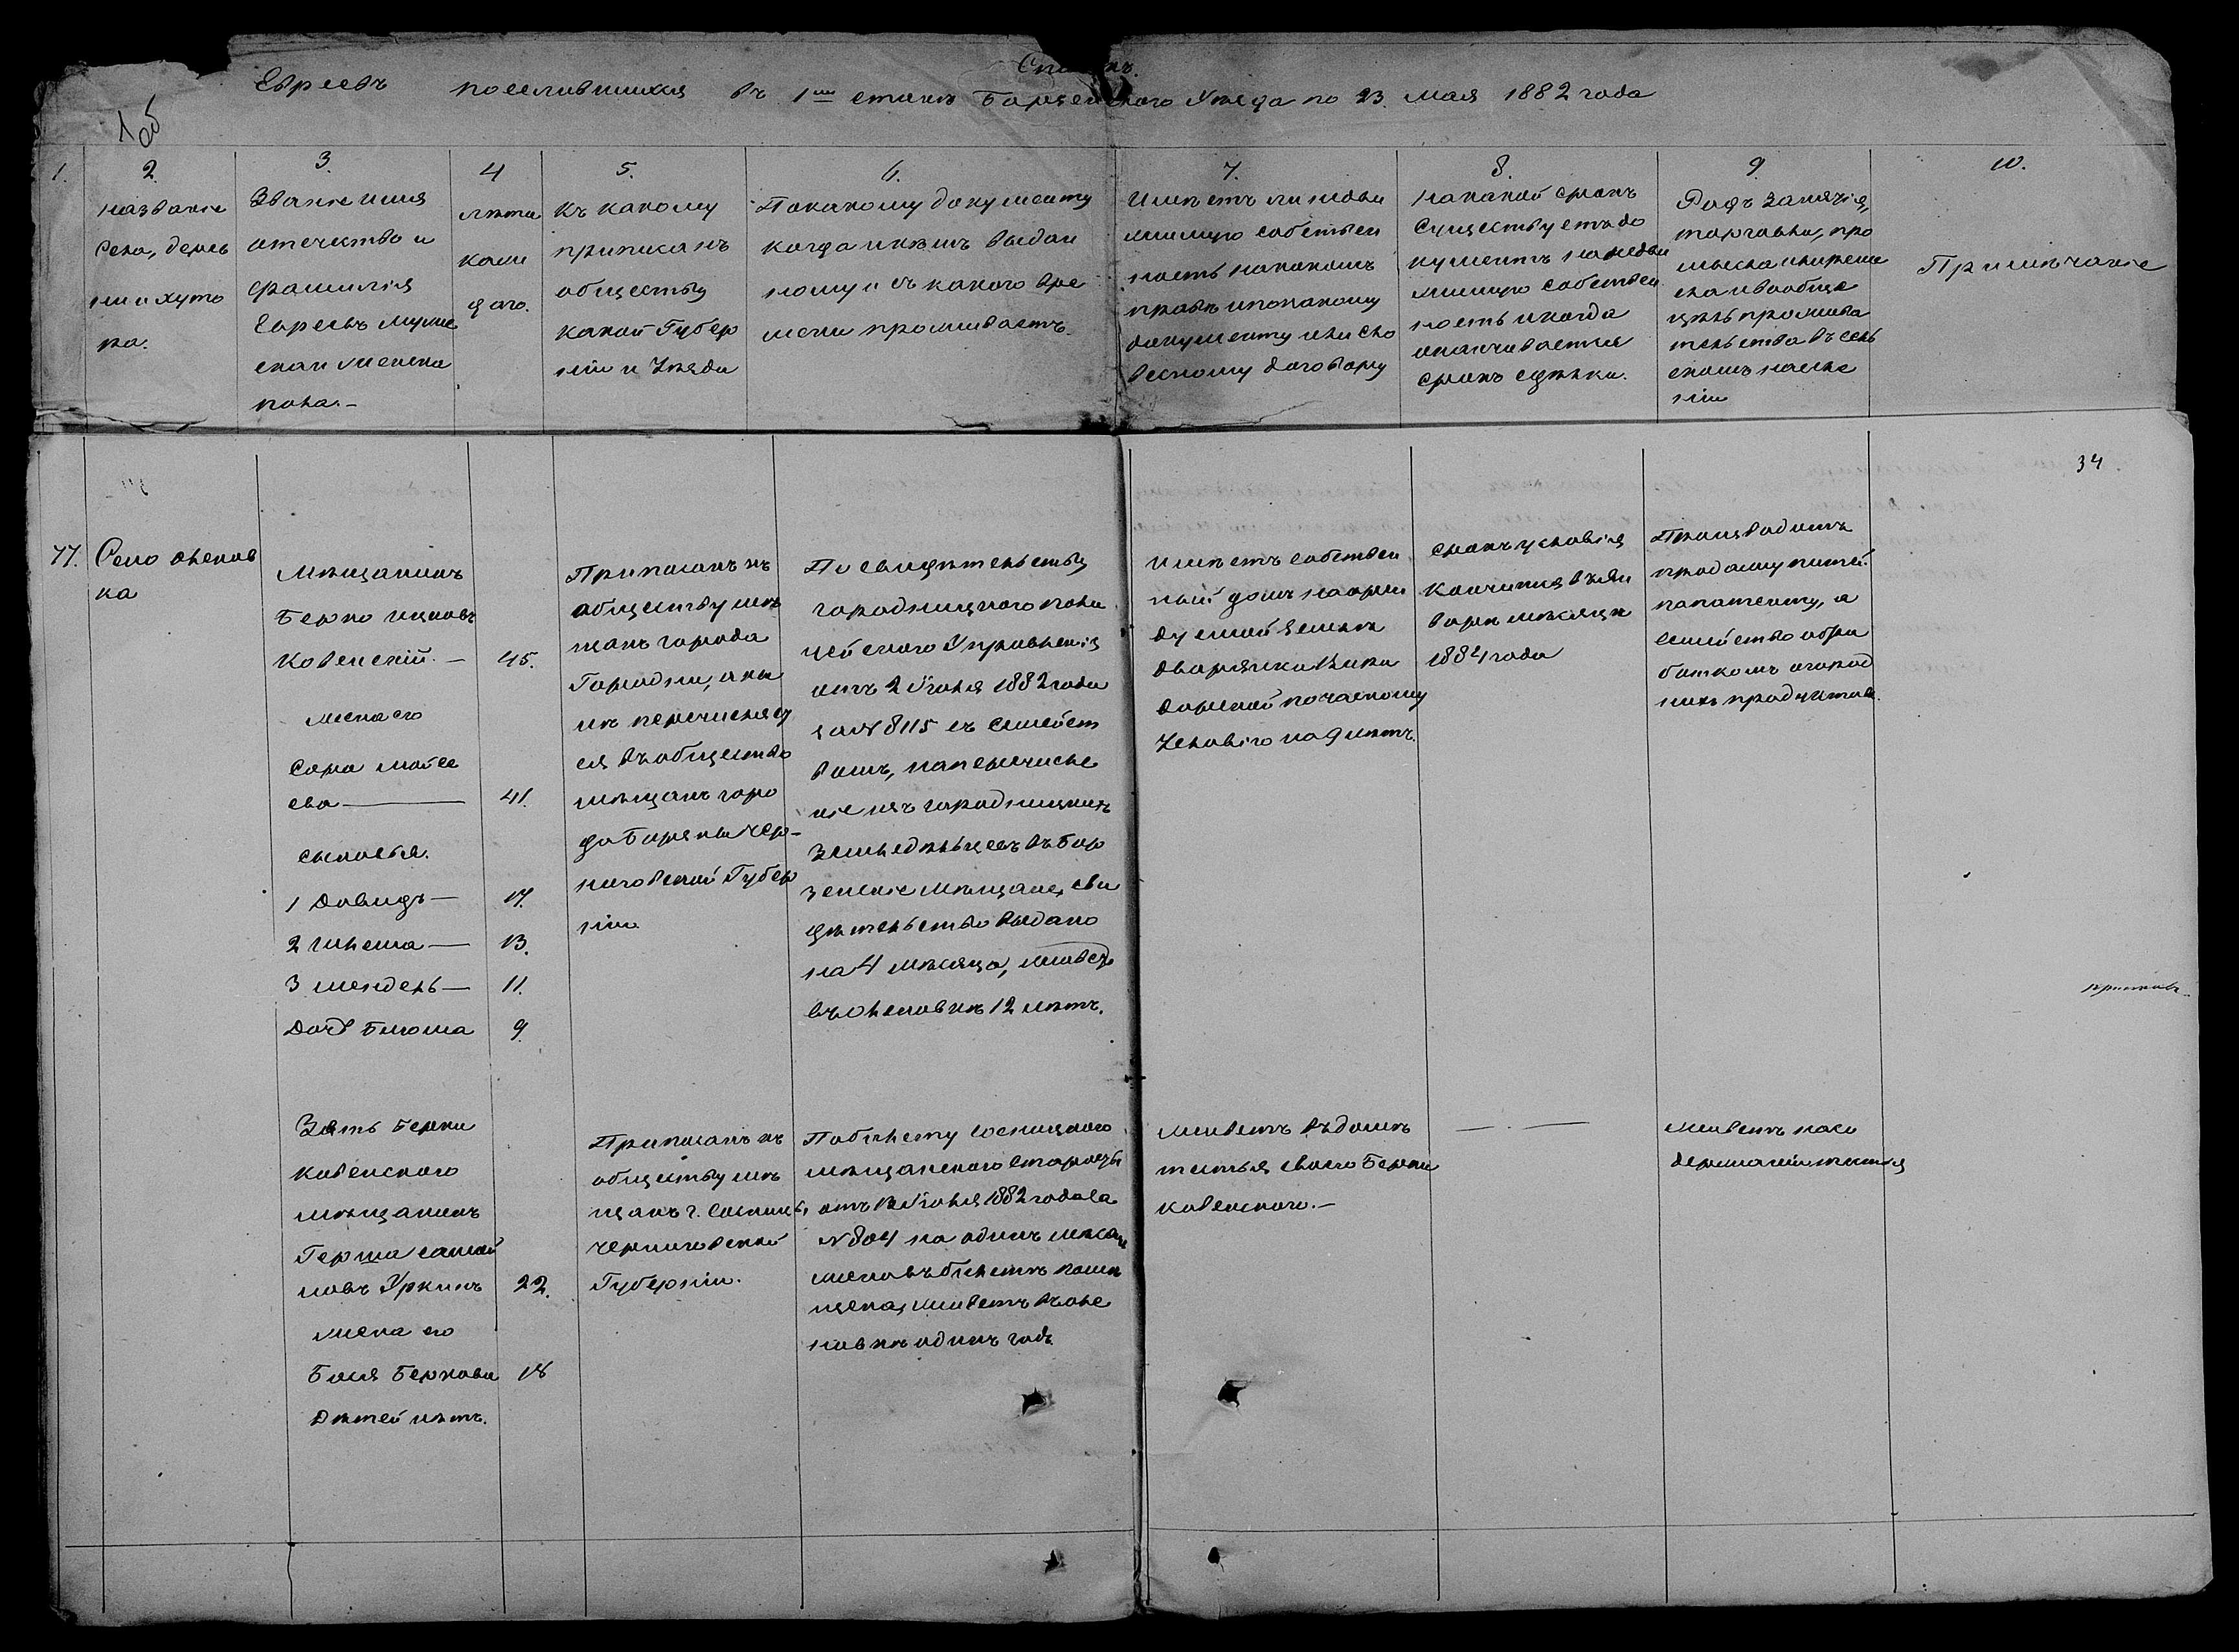 Списокъ
Евреевъ поселившихся въ 1мъ станѣ Борзенского Уѣзда по 23 мая 1882 года
1 об
1.
2.
Названіе
Села, дерев
ни и хуто
ра.
3.
Званіе имя
отечество и
фамилія
Евреевъ муже
ска и женска
пола.–
4
лѣта
кажд
даго.
5.
Къ какому
приписанъ
обществу
какой Губер
ніи и Уѣзда
6.
По какому документу
когда и кѣмъ выдан
ному и съ какого вре
мени проживаетъ.
7.
Имѣетъ ли недви
жимую собствен
ность на какомъ
правѣ и по какому
документу или сло
весному договору
8.
На какой срокъ
существуетъ до
кументъ на недви
жимую собствен
ность и когда
оканчивается
срокъ сдѣлки.
9.
Родъ занятія,
торговли, про
мысла и ремес
ла и вообще
цѣль прожива
тельства въ сель
скомъ населе
ніи
10.
Примѣчаніе
34
77.
Село Оленов
ка
Мѣщанинъ
Берко Ицковъ
Ковенскій.– 45.
жена его
Сора Мойсе
ева — 41.
сыновья.
1 Довидъ — 17.
2 Шлема — 13.
3 Мендель — 11.
Дочь Блюма 9.
Приписанъ къ
обществу мѣ
щанъ города
Городни, а ны
нѣ перечисляет
ся въ общество
мѣщанъ горо
да Борзны Чер–
ниговской Губер
ніи
По свидѣтельству
Городницкого поли
цейского Управленія
отъ 2 Іюня 1882 года
за № 8115 съ семейст
вомъ, на перечисле
ніе изъ городницкихъ
земледѣльцевъ въ Бор
зенскіе мѣщане, сви
дѣтельство выдано
на 4 мѣсяца, живетъ
въ Оленовкѣ 12 лѣтъ.
Имѣетъ собствен
ный домъ на арен
дуемой землѣ
дворянки
по частному
Условію на 9 лѣтъ.
Срокъ условія
кончится въ Ян
варѣ мѣсяцѣ
1884 года
Производитъ
продажу питей
по патенту, а
семейство обра
боткомъ огород
нихъ продуктов.
Зять Берки
Ковенского
мѣщанинъ
Герша Самой
ловъ Уркинъ 22.
жена его
Бася Беркова 18
Дѣтей нѣтъ.
Приписанъ къ
обществу мѣ
щанъ г. Сосницы,
Черниговской
Губерніи.
По билету Сосницкого
мѣщанского старосты
отъ 12 Іюня 1882 года за
№ 804 на одинъ мѣсяцъ
жена въ билетѣ помѣ
щена, живетъ въ Оле
новкѣ одинъ годъ
Живетъ въ домѣ
тестя своего Берки
Ковенского.–
— · —
Живетъ на со
держаніи тестя